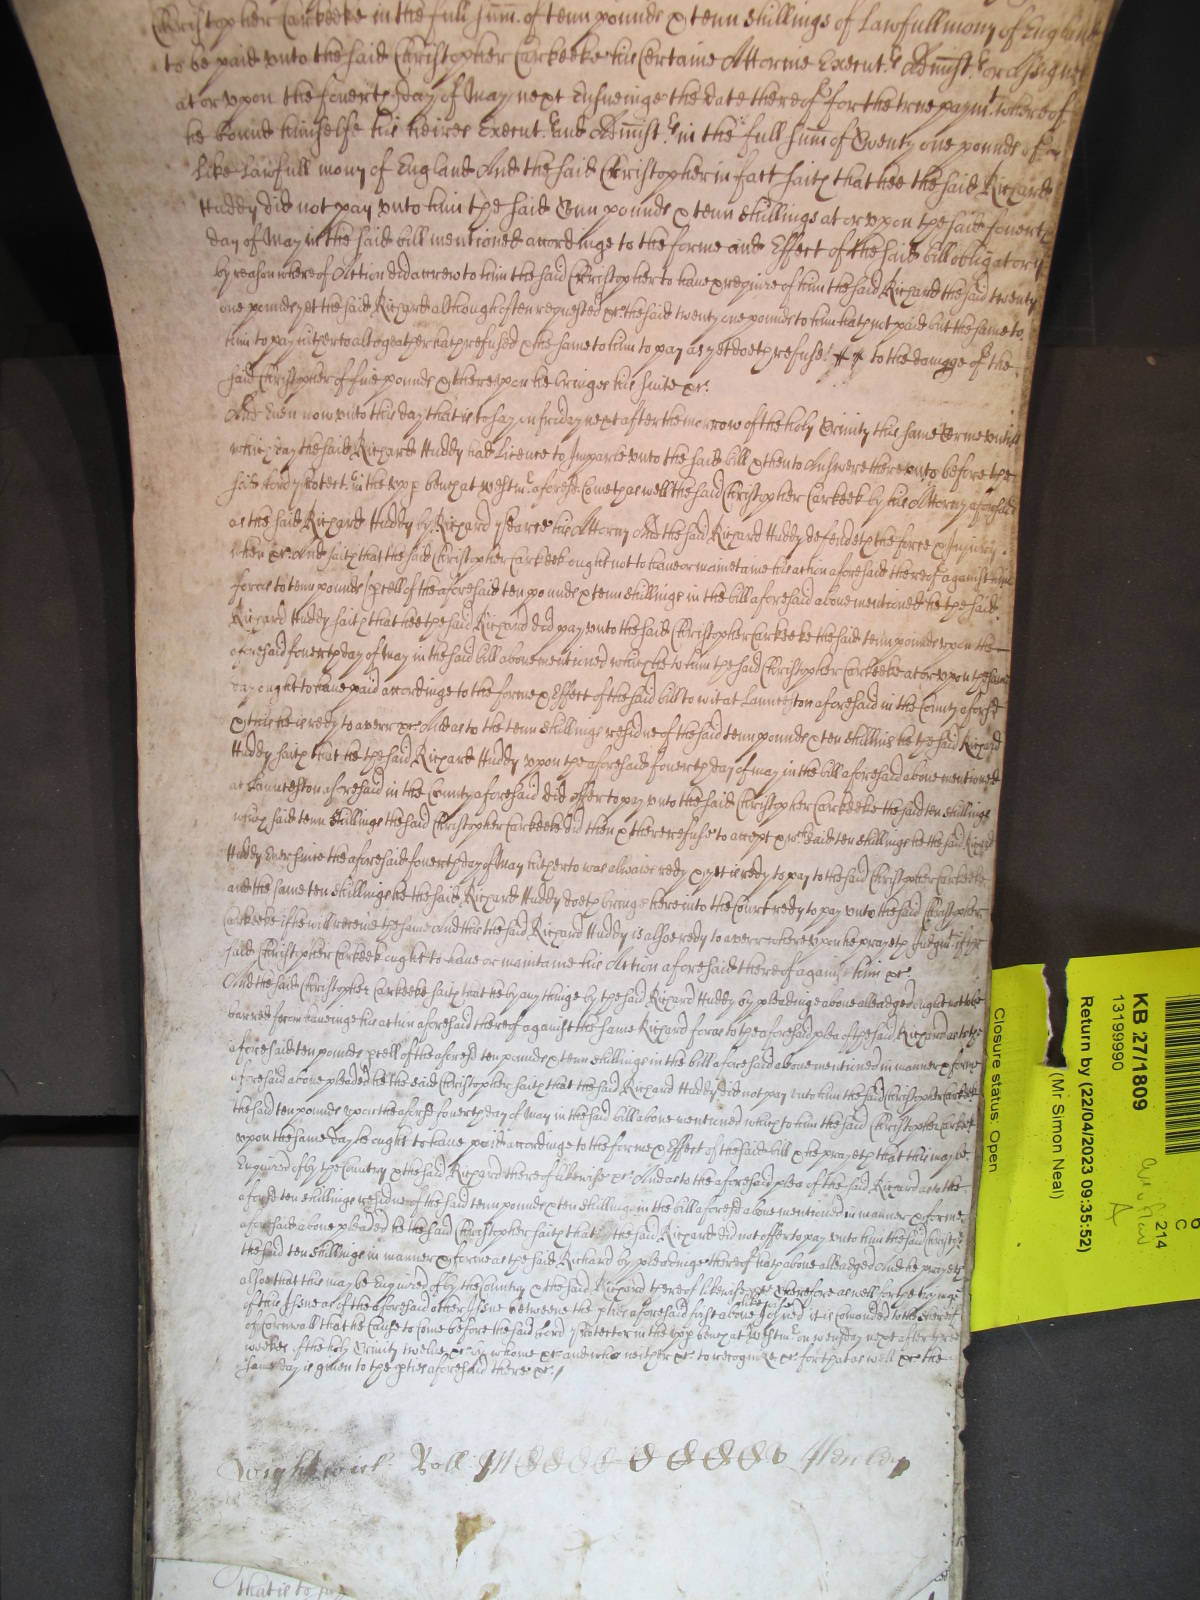 Christopher Carkeeke in the full sum̅ of tenn pounds & tenn shillings of Lawfull mony of England
to be paid unto the said Christopher Carkeeke his Certaine Attornie Execut.rs Administ.rs or assignes
at or upon the fowerth day of May next Ensueinge the date thereof for the true paymt. whereof
he bound himselfe his heires Execut.rs and Administ.rs in the full sum̅ of Twenty one pounds of
Like Lawfull mony of England And the said Christopher in fact saith that hee the said Richard
Huddy did not pay unto him the said tenn pounds & tenn shillings at or upon the said fowerth
day of May in the said bill mentioned accordinge to the forme and Effect of the said bill obligatory
by reason whereof Action did accrew to him the said Christopher to have & require of him the said Richard the said twenty
one pounds yet the said Richard although often requested &c. the said twenty one pounds to him hath not paid but the same to
him to pay hitherto altogeather hath refused & the same to him to pay as yet doeth refuse to the damage of the
said Christopher of five pounds & thereupon he bringes his suite &c.
And Even now unto this day that is to say on friday next after the morrow of the holy Trinity this same Terme untill
which day the said Richard Huddy had Licence to Imparle unto the said bill & then to Answere thereunto before the
said Lord Protect.r in the upp bench at Westm.r aforesd. Cometh as well the said Christopher Carkeek by his Attorny aforesaid
as the said Richard Huddy by Richard Pearce his Attorny And the said Richard Huddy defendeth the force & Injury
when &c. And saith that the said Christopher Carkeek ought not to have or mainetaine his action aforesaid thereof against him
for as to tenn pounds p̅cell of the aforesaid ten pounds & tenn shillings in the bill aforesaid above mentioned he the said
Richard Huddy saith that hee the said Richard did pay unto the said Christopher Carkeeke the said tenn pounds upon the
aforesaid fowerth day of May in the said bill above mentioned which he to him the said Christopher Carkeeke at or upon the same
day ought to have paid accordinge to the forme & Effect of the said bill to wit at Launceston aforesaid in the County aforesd.
& this he is ready to averr &c. And as to the tenn shillings residue of the said tenn pounds & ten shillings he the said Richard
Huddy saith that he the said Richard Huddy upon the aforesaid fowerth day of may in the bill aforesaid above mentioned
at Launceston aforesaid in the County aforesaid did offer to pay unto the said Christopher Carkeeke the said ten shillings
which said tenn shillings the said Christopher Carkeeke did then & there refuse to accept & said ten shillings he the said Richard
Huddy Ever since the aforesaid fowerth day of May hitherto was allwaies redy & yet is redy to pay to the said Christopher Carkeeke
and the same ten shillings he the said Richard Huddy doeth bringe here into the Court redy to pay unto the said Christopher
Carkeeke if he will receive the same And this the said Richard Huddy is alsoe redy to averr whereupon he prayeth Judgmt. if the
said Christopher Carkeek ought to have or maintaine his Action aforesaid thereof against him &c.
And the said Christopher Carkeeke saith that he by any thinge by the said Richard Huddy by pleadinge above alleadged ought not to be
barred from haveinge his action aforesaid thereof against the same Richard for as to the aforesaid plea of the said Richard as to the
aforesaid ten pounds p̅cell of the aforesd ten pounds & tenn shillings in the bill aforesaid above mentioned in manner & forme
aforesaid above pleaded he the said Christopher saith that the said Richard Huddy did not pay unto him the said Christopher Carkeek
the said ten pounds upon the aforesd fowerth day of May in the said bill above mentioned which to him the said Christopher Carkeek
upon the same day he ought to have paid accordinge to the forme & Effect of the said bill & he prayeth that this may be
Enquired of by the Country & the said Richard thereof likewise &c. And as to the aforesaid plea of the said Richard as to the
aforesd ten shillings residue of the said tenn pounds & ten shillings in the bill aforesd above mentioned in manner & forme
aforesaid above pleaded he the said Christopher saith that the said Richard did not offer to pay unto him the said Christop.r
the said ten shillings in manner & forme as the said Richard by pleadinge thereof hath above alleadged And he prayeth
alsoe that this may be Enquired of by the Country & the said Richard thereof likewise &c. Therefore as well for the tryinge
of this Issue as of the aforesaid other Issue betweene the p̅ties aforesaid first above likewise Joyned it is Comanded to the Sheriff
of Cornwall that he Cause to Come before the said Lord Protector in the upp bench at Westm.r on wensday next after three
weekes of the holy Trinity twelve &c. by whome &c. and who neither &c. to recognize &c. for that as well &c. the
same day is given to the p̅ties aforesaid there &c.
Wightwick Roll
that is to say
KB 27/1809
13199990
Return by (22/04/2023 09:35:52)
(Mr Simon Neal)
Closure status: Open
6
C
214
A